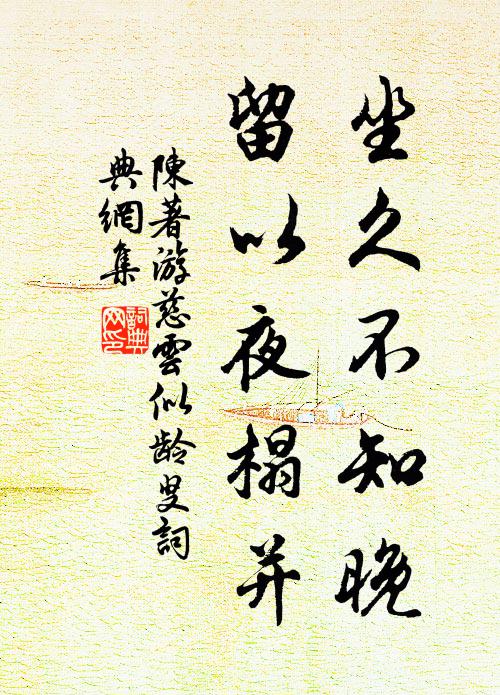 坐久不知晚
留以夜榻并
陳著游慈雲似龄叟詞
典網集
詞典
网印